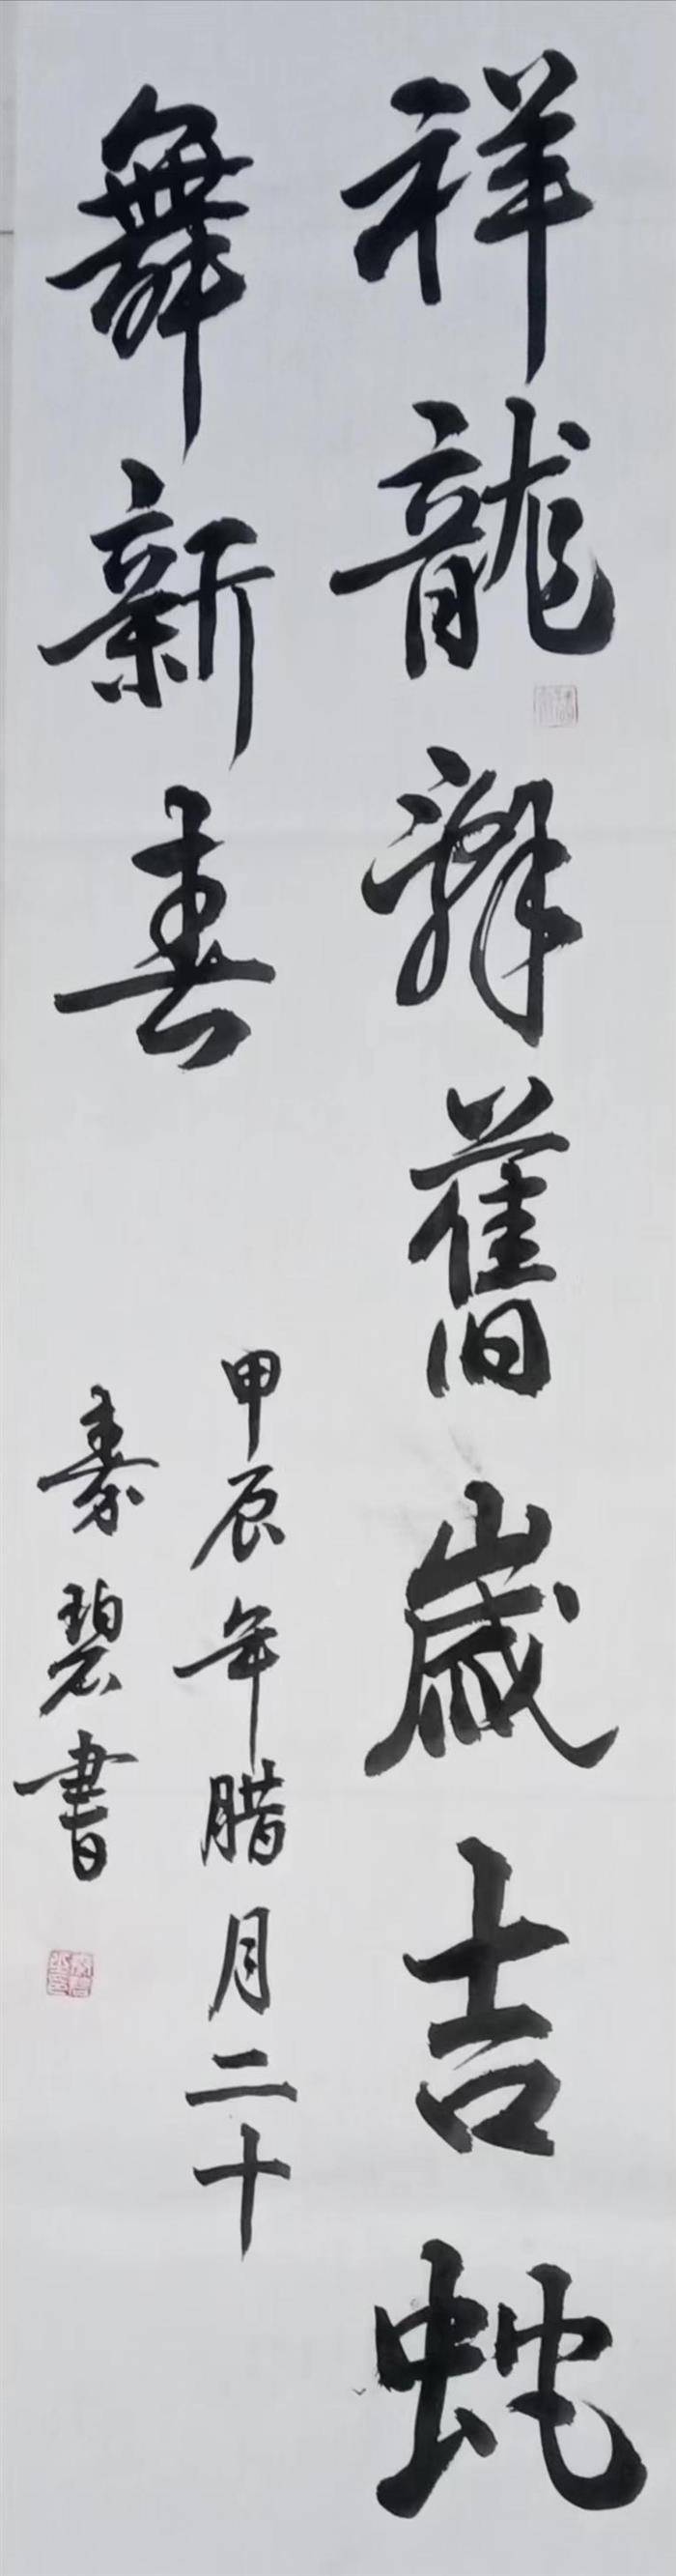 祥龍辭舊歲吉蛇
舞新春
甲辰年腊月二十
秦碧書